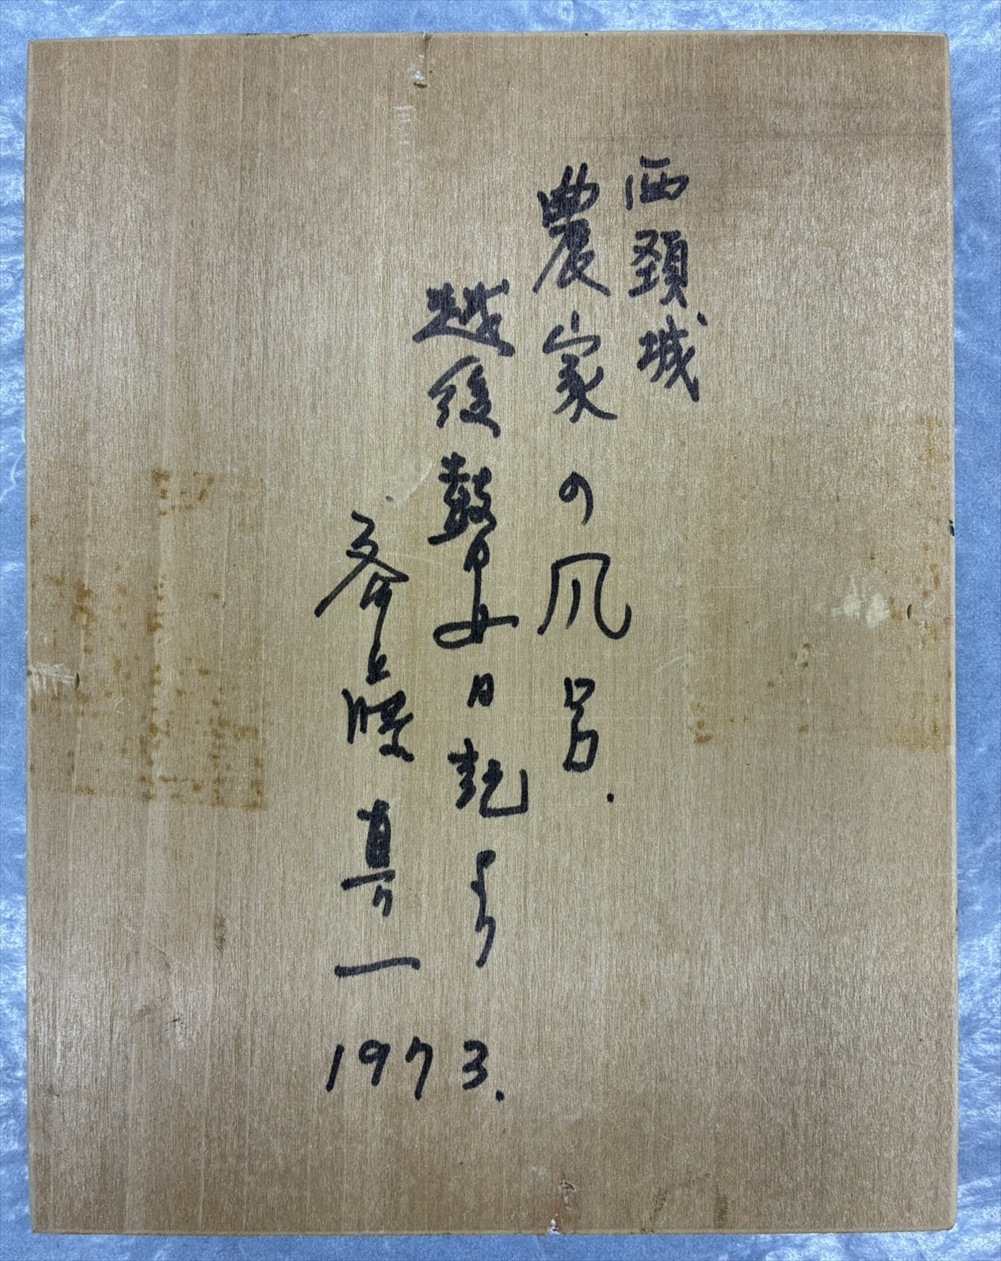 西頚城
農家の風呂.
越後瞽女日記より
斎藤真一
1973.